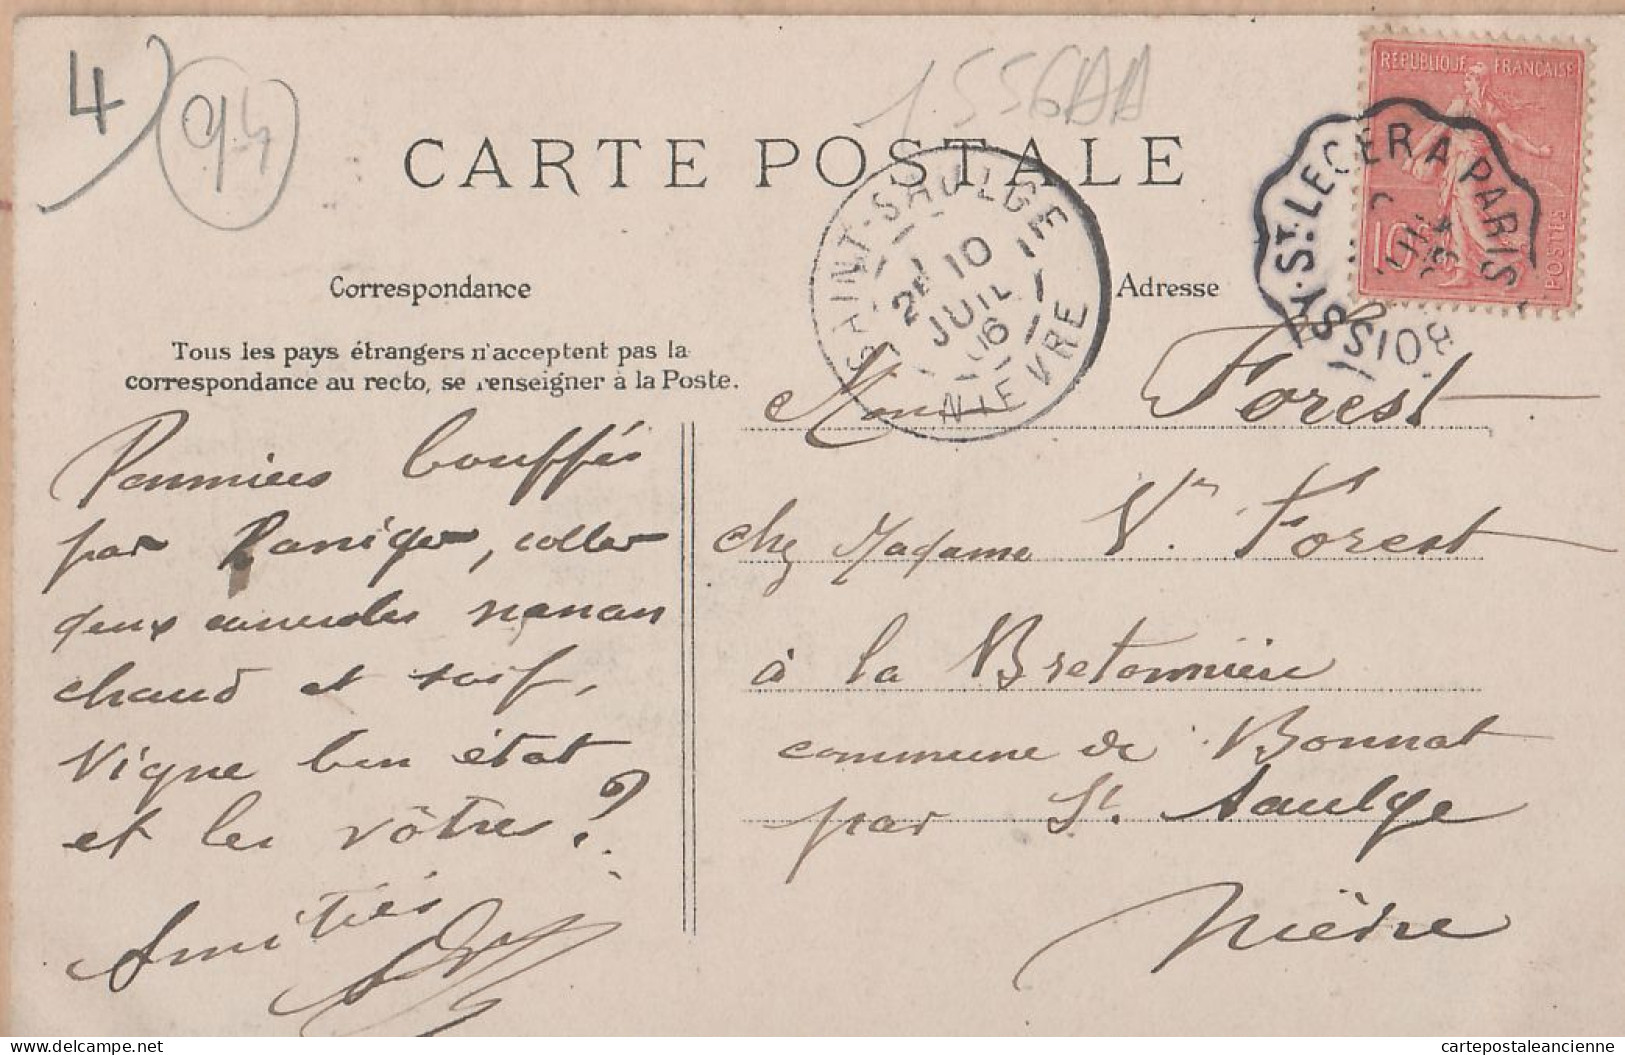 4)
94
1556AA
CARTE POSTALE
Correspondance
Tous les pays étrangers n'acceptent pas la
correspondance au recto, se renseigner à la Poste.
Adresse
SAINT-SAULGE
2E 10
JUIL
06
NIEVRE
BOISSY-ST-LEGER A PARIS
REPUBLIQUE FRANÇAISE
10c
POSTES
Pommiers bouffés
par
deux
chaud et soif,
Vigne bon état
et les vôtres?
Amitiés
Forest
chez Madame Ve Forest
à la Bretonnière
commune de Bonnat
par St. Saulge
Nièvre
www.delcampe.net
cartepostaleancienne